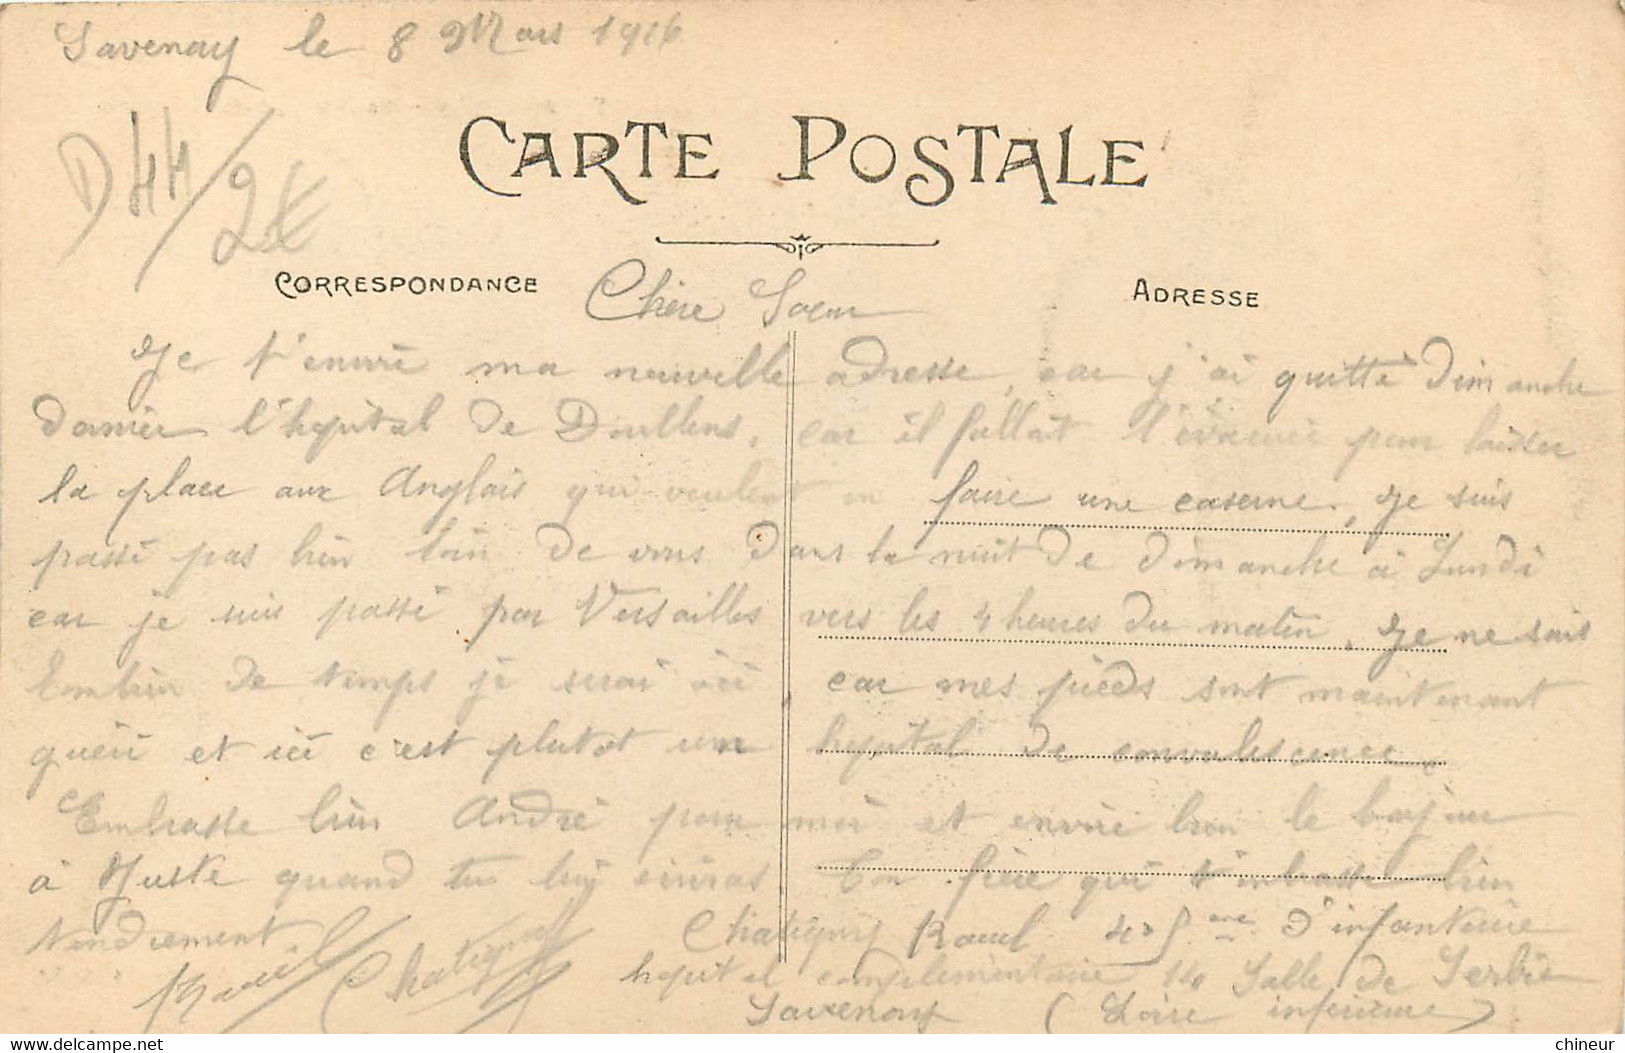 Savenay le 8 Mars 1916
D44/2€
CARTE POSTALE
CORRESPONDANCE
ADRESSE
Chère Soeur
Je t'envoie ma nouvelle adresse, car j'ai quitté Dimanche
dernier l'hopital de Doullens, car il fallait l'évacuer pour laisser
la place aux Anglais qui veulent en faire une caserne. Je suis
passé pas bien loin de vous dans la nuit de dimanche à Lundi
car je suis passé par Versailles vers les 4 heures du matin. Je ne sais
combien de temps je serai ici, car mes pieds sont maintenant
guéri et ici c'est plutot un hopital de convalescence.
Embrasse bien André pour moi et envoie bien le bonjour
à Juste quand tu luy écriras Ton frère qui t'embrasse bien
tendrement.
Raoul
Raoul d'infanterie
hopital complementaire 14 Salle de Serbie
Savenay (Loire inférieure)
delcampe.net
chineur